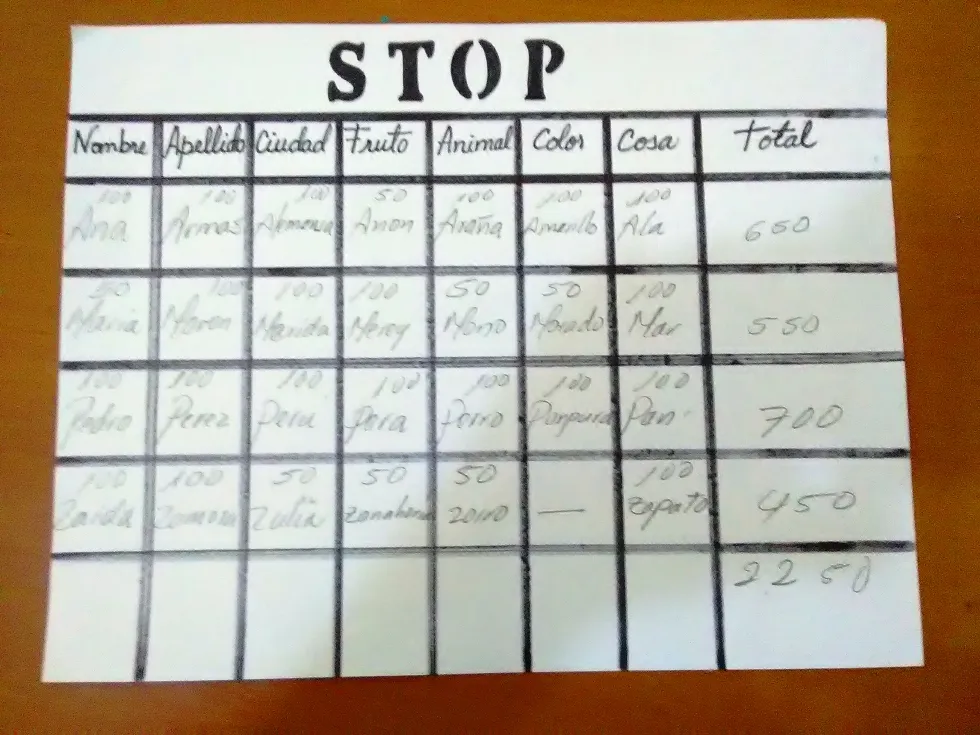 STOP
Nombre Apellido Ciudad Fruto Animal Color Cosa Total
100 100 100 50 100 100 100
Ana Armas Armenia Anon Araña Amarillo Ala 650
50 100 100 100 50 50 100
Maria Moron Merida Merey Mono Morado Mar 550
100 100 100 100 100 100 100
Pedro Perez Peru Pera Perro Purpura Pan 700
100 100 50 50 50 100
Zaida Zamora Zulia Zanahoria zorro — zapato 450
2250